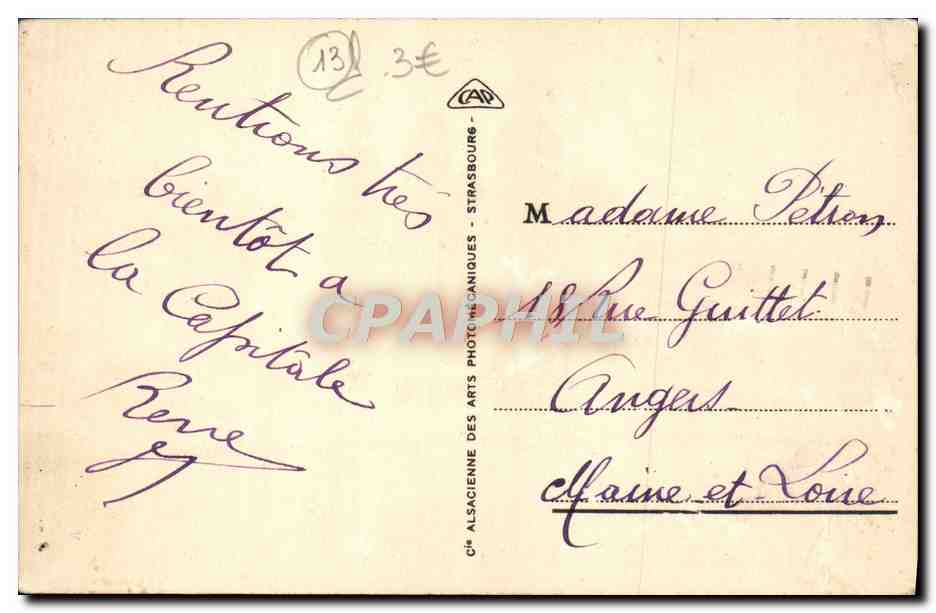 13
3€
Rentrons très
bientôt a
la Capitale
René
CAP
Cie ALSACIENNE DES ARTS PHOTOMÉCANIQUES - STRASBOURG -
Madame Pétron
18 Rue Guittet
Angers
Maine-et-Loire
CPAPHIL